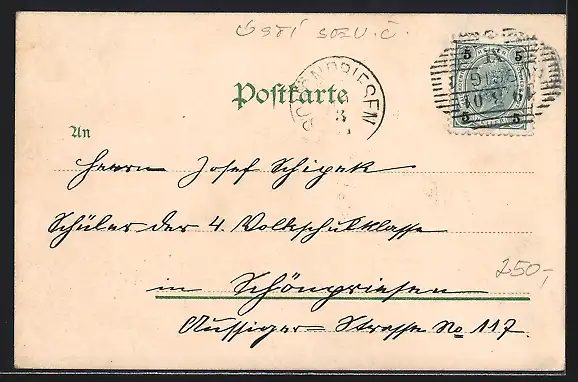 ÚSTÍ
5 5
5 5
SCHÖNPRIESEN
Postkarte
An
Herrn Josef Schipek
Schüler der 4. Volksschulklasse
in Schönpriesen
250,-
Aussiger-Strasse No 117.